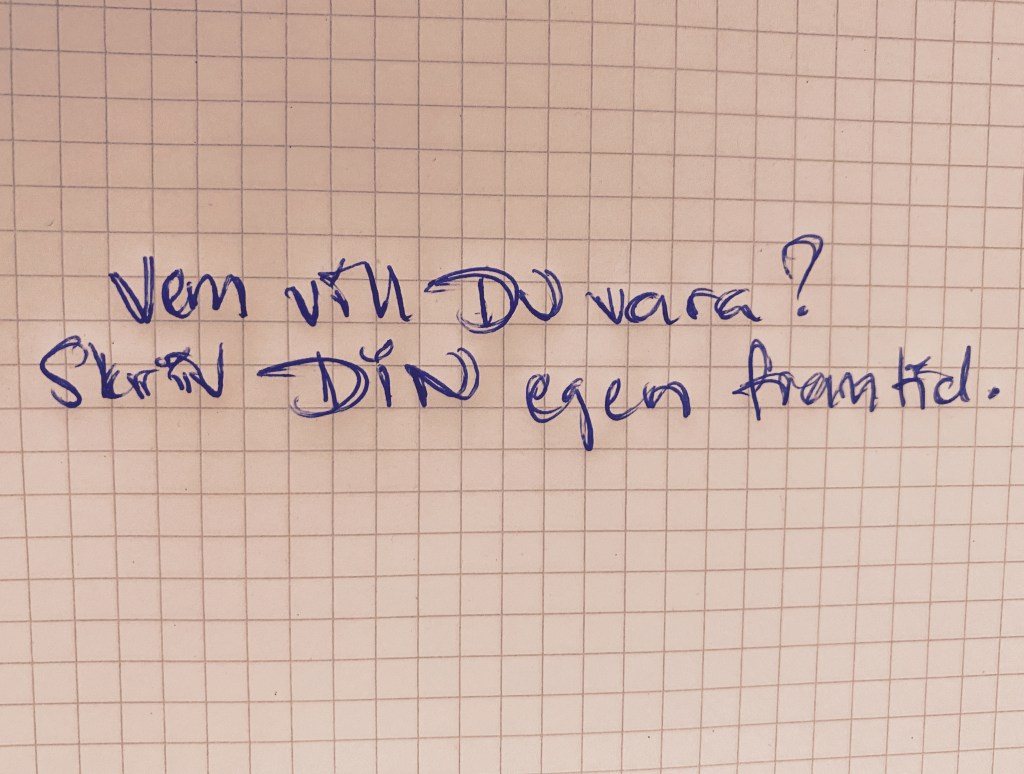 Vem vill DU vara?
Skriv DIN egen framtid.